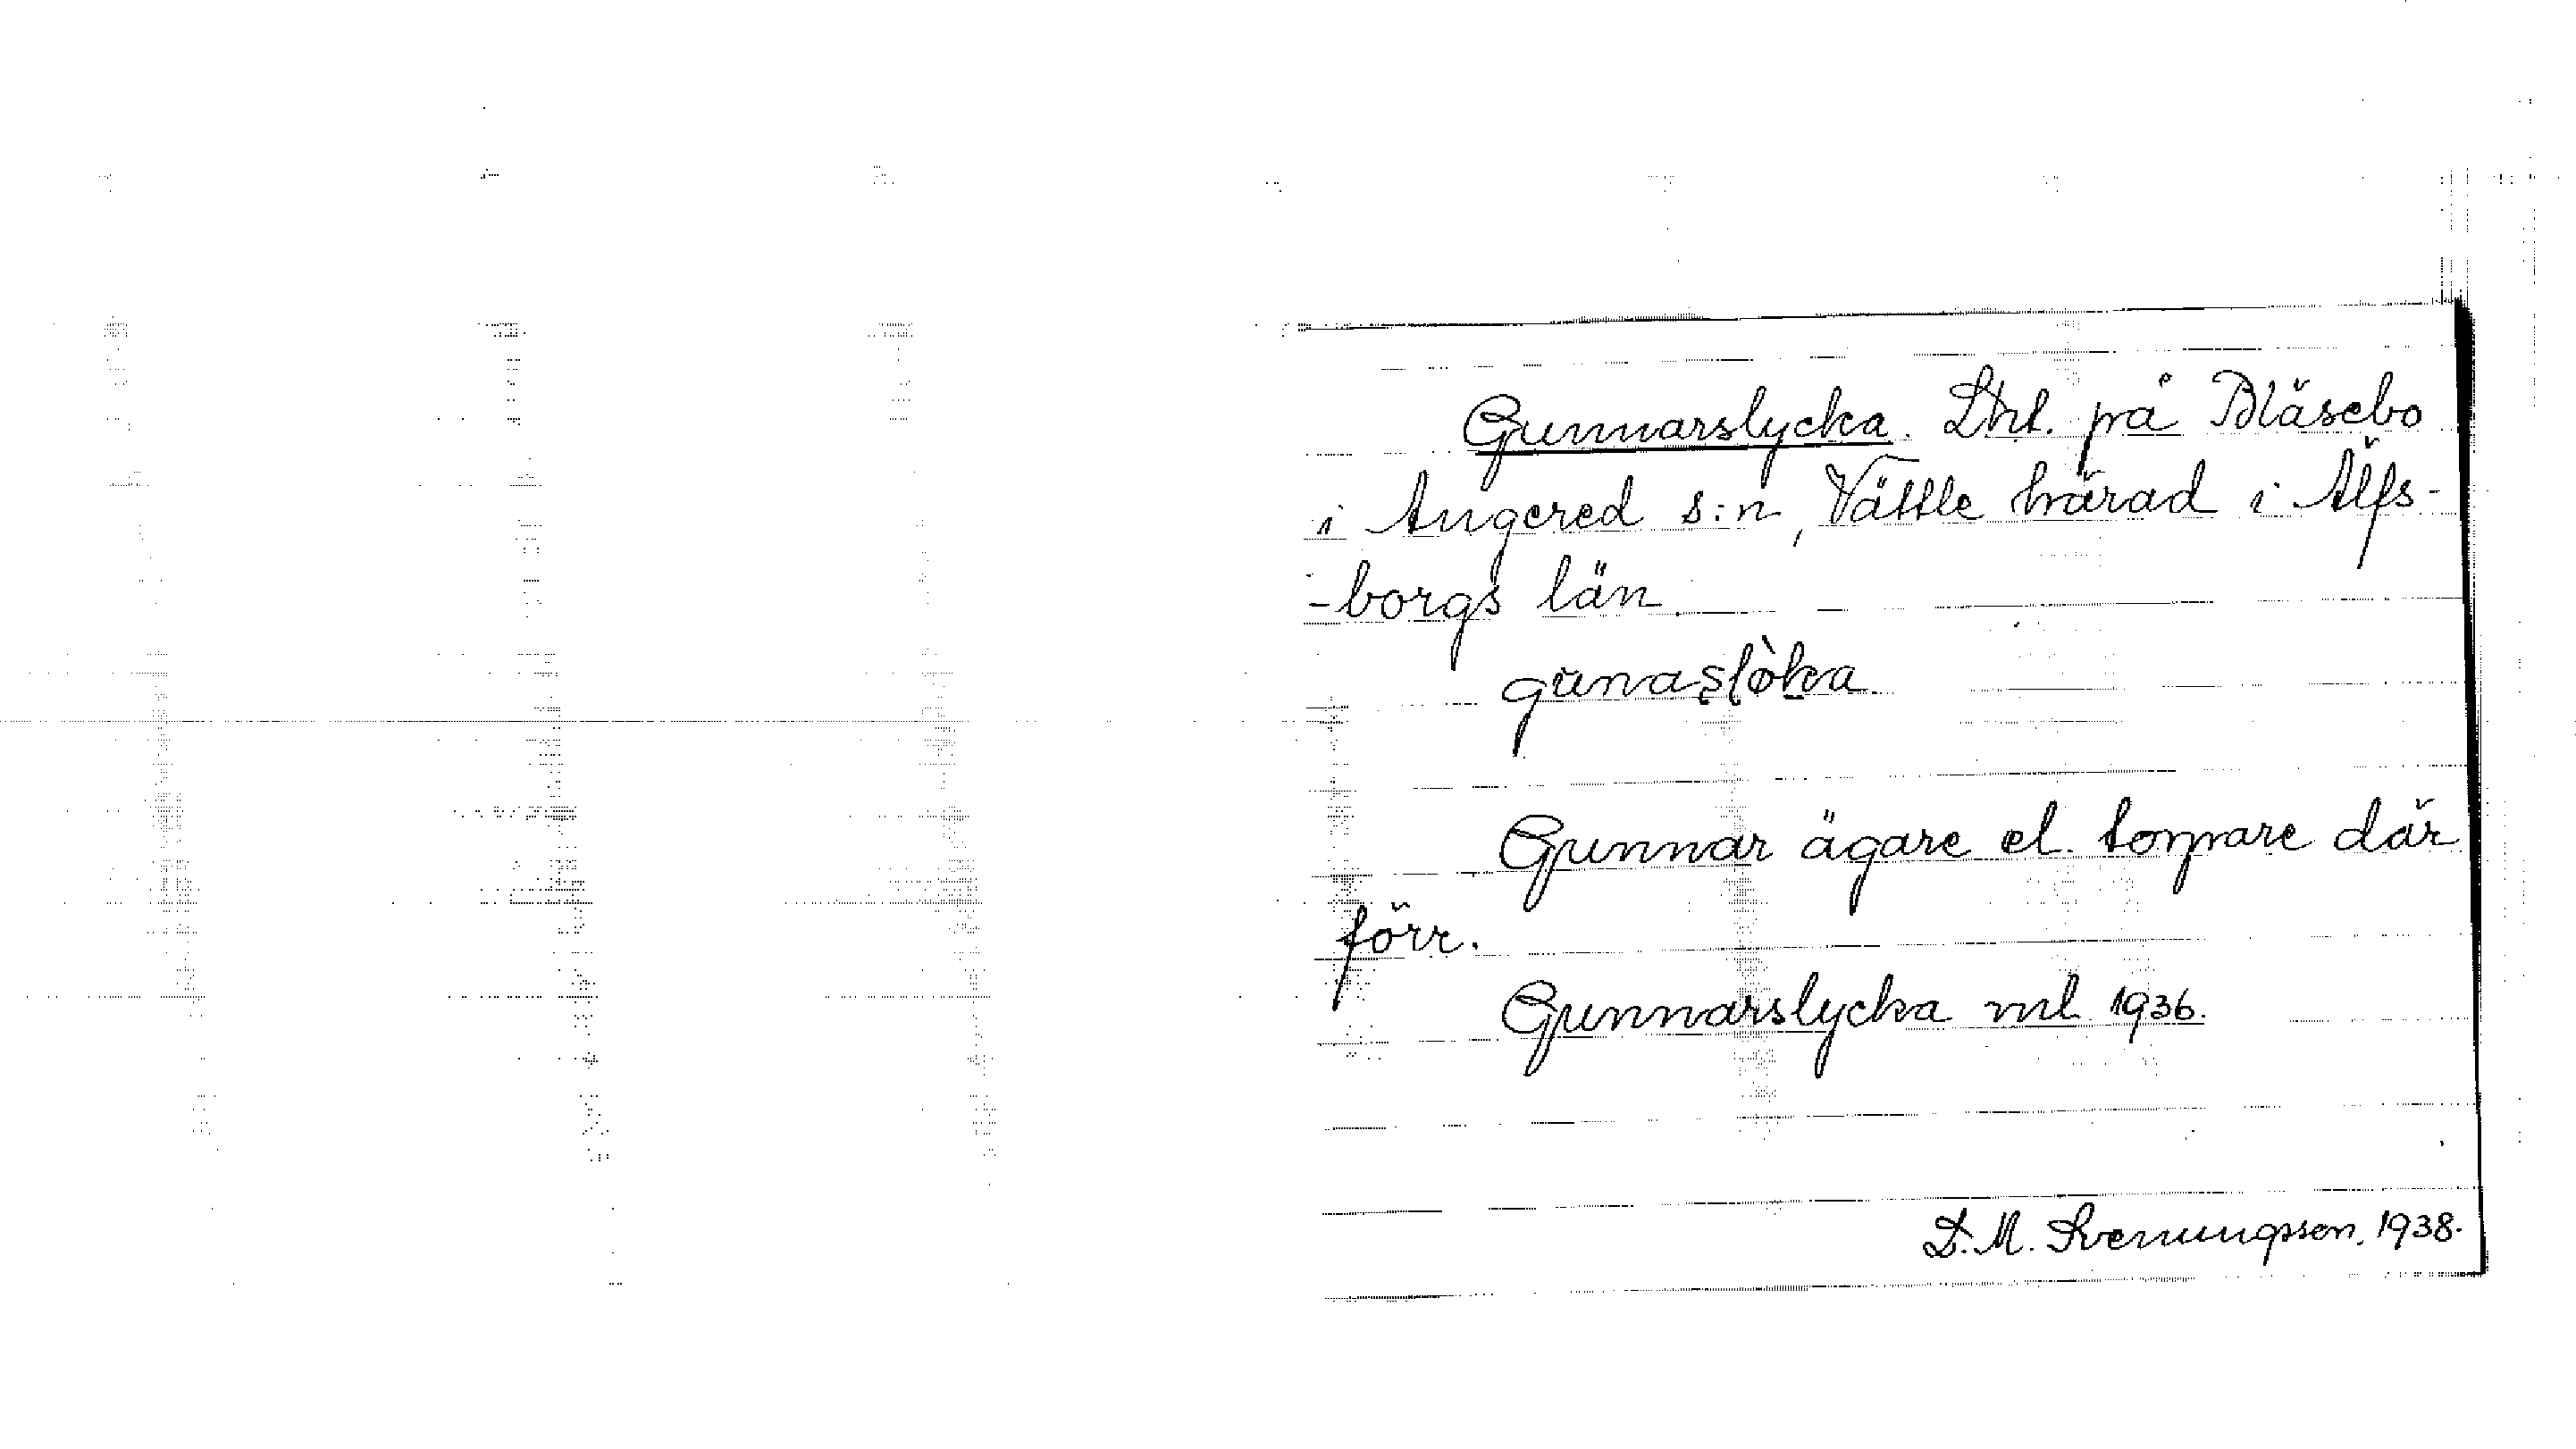 Gunnarslycka. Lht. på Bläsebo
i Angered s:n, Vättle härad i Älfs-
-borgs län.
gunaslòka
Gunnar ägare el. torpare där
förr.
Gunnarslycka ml 1936.
D. M. Svenungsson. 1938.